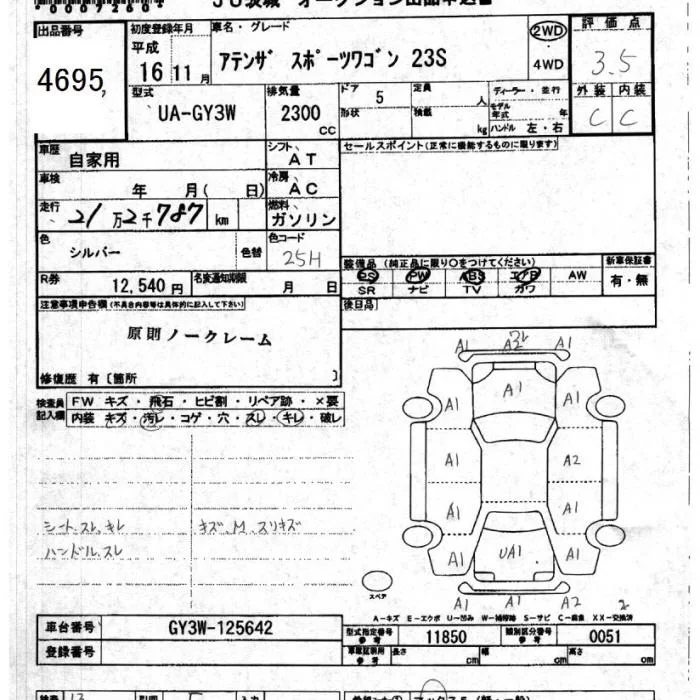 00072604
JU茨城 オークション出品申込書
出品番号 初度登録年月 車名・グレード 2WD 評価点
4695 平成 16 11月 アテンザ スポーツワゴン 23S 4WD 3.5
型式 排気量 ドア 定員 ディーラー・並行 外装 内装
UA-GY3W 2300 cc 5 人 モデル年式 年 C C
形状 積載 kg ハンドル 左・右
車歴 自家用 シフト AT セールスポイント(正常に機能するものに限ります)
車検 年 月( 日) 冷房 AC
走行 21万2千787 km 燃料 ガソリン
色 シルバー 色替 色コード 25H
装備品 (純正品に限り○をつけてください) 新車保証書
R券 12,540円 名変通知期限 月 日 PS PW ABS エアB AW 有・無
SR ナビ TV カワ
注意事項申告欄(不具合内容等は具体的に記入して下さい) 後日品
原則ノークレーム
修復歴 有〔箇所 〕
検査員記入欄 FW キズ・飛石・ヒビ割・リペア跡・×要
内装 キズ・汚レ・コゲ・穴・スレ・キレ・破レ
A1 A2 A1
A1
A1 A1
A1 A2
A1 A1
A1 UA1 A1
シート.スレ.キレ キズ.M.スリキズ
ハンドル.スレ
スペア
A1 A1 A2 2
A-キズ E-エクボ U-凹み W-補修跡 S-サビ C-腐食 XX-交換済
車台番号 GY3W-125642 型式指定番号 参考 11850 類別区分番号 参考 0051
登録番号 車庫証明用 参考 長さ cm 幅 cm 高さ cm